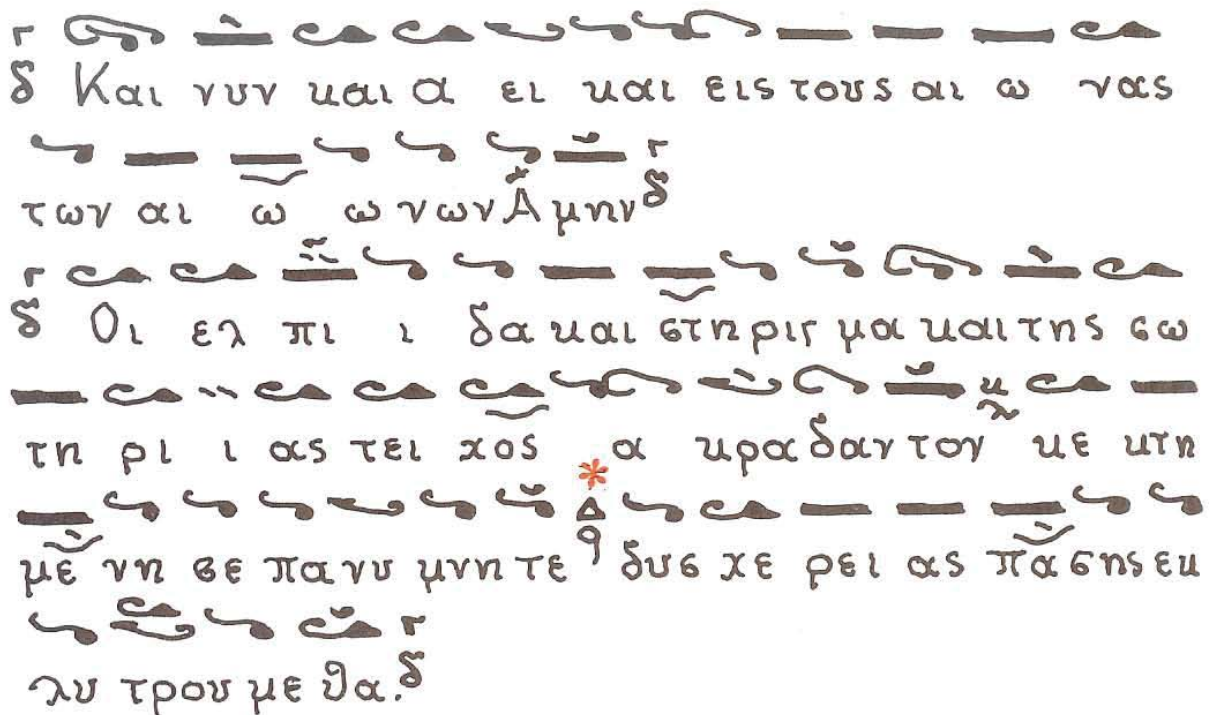 δ Και νυν και α ει και εις τους αι ω νας
των αι ω ω νων Α μην δ
δ Οι ελ πι ι δα και στη ριγ μα και της σω
τη ρι ι ας τει χος α κρα δαν τον κε κτη
με νη σε πα νυ μνη τε δυσ χε ρει ας πα σης εκ
λυ τρου με θα. δ